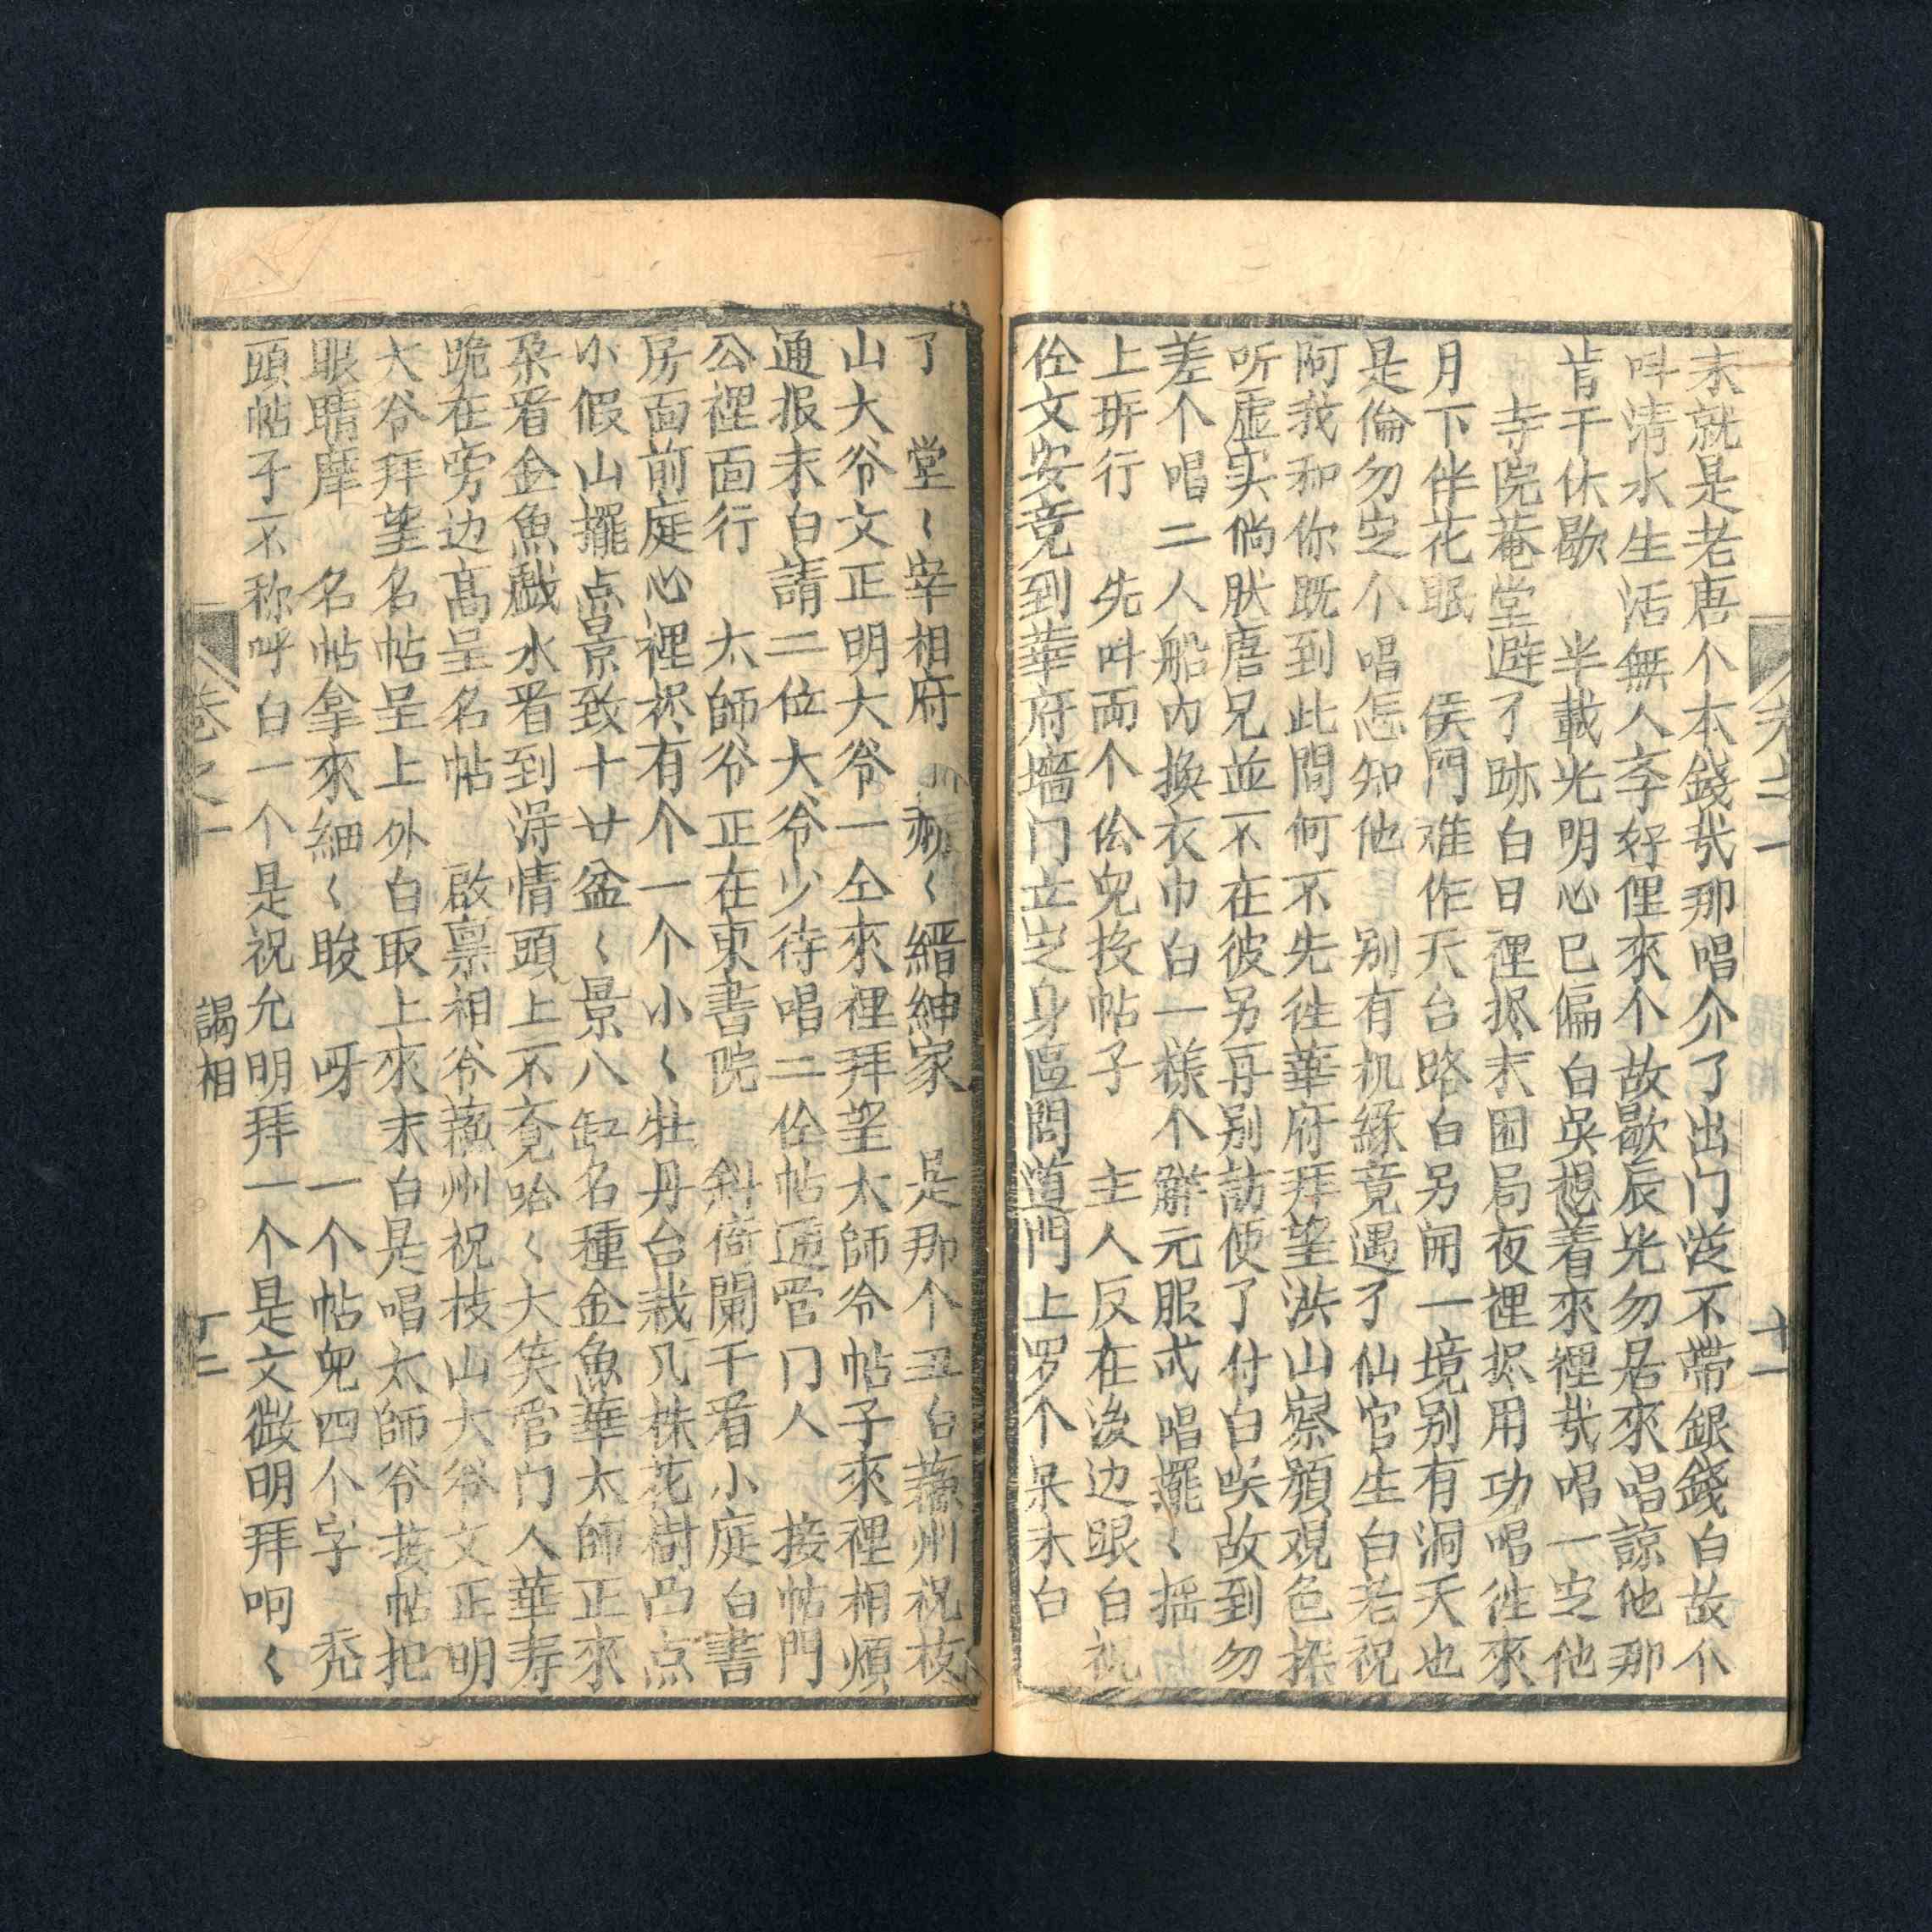 末就是老唐个本錢㢤那唱介了出门從不帶銀錢白故个
呌清水生活無人李好俚來个故歇辰光勿是來唱諒他那
肯干休歇　半載光明心已偏白吳想着來裡㢤唱一定他
寺院菴堂避了跡白日裡拯末困局夜裡拯用功唱徃來
月下伴花眠　侯門难作天台路白另闹一境别有洞天也
是倫勿定个唱怎知他　别有机緣竟遇了仙官生白若祝
阿我和你既到此間何不先徃華府拜望洪山察顏观色探
听虛实倘肰唐兄並不在彼另再别訪便了付白唉故到勿
差个唱二人船內換衣巾白一樣个觧元服式唱擺〱揺
上珩行　先呌両个伀兒投帖子　主人反在後边眼白祝
佺文安竟到華府墻门立定身區問道門上罗个呆末白
卷之一
十一
了　堂〱宰相府　赫〱縉紳家　是那个丑白蘓州祝枝
山大爷文正明大爷一仝來裡拜望太師爷帖子來裡相煩
通报末白請二位大爷少待唱二佺帖逓管门人　接帖門
公裡面行　太師爷正在東書院　斜倚闌干看小庭白書
房面前庭心裡拯有个一个小〱牡丹台栽几株花樹凸点
小假山擺点景致十廿盆〱景八缸名種金魚華太師正來
朶看金魚戲水看到淂情頭上不覔哈〱大笑管门人華寿
跪在旁边髙呈名帖　啟禀相爷蘓州祝枝山大爷文正明
大爷拜望名帖呈上外白取上來末白是唱太師爷接帖把
眼睛摩　名帖拿來細〱睃　呀　一个帖兒四个字　秃
頭帖子不称呼白一个是祝允明拜一个是文徴明拜呵〱
卷之一
謁相
十二